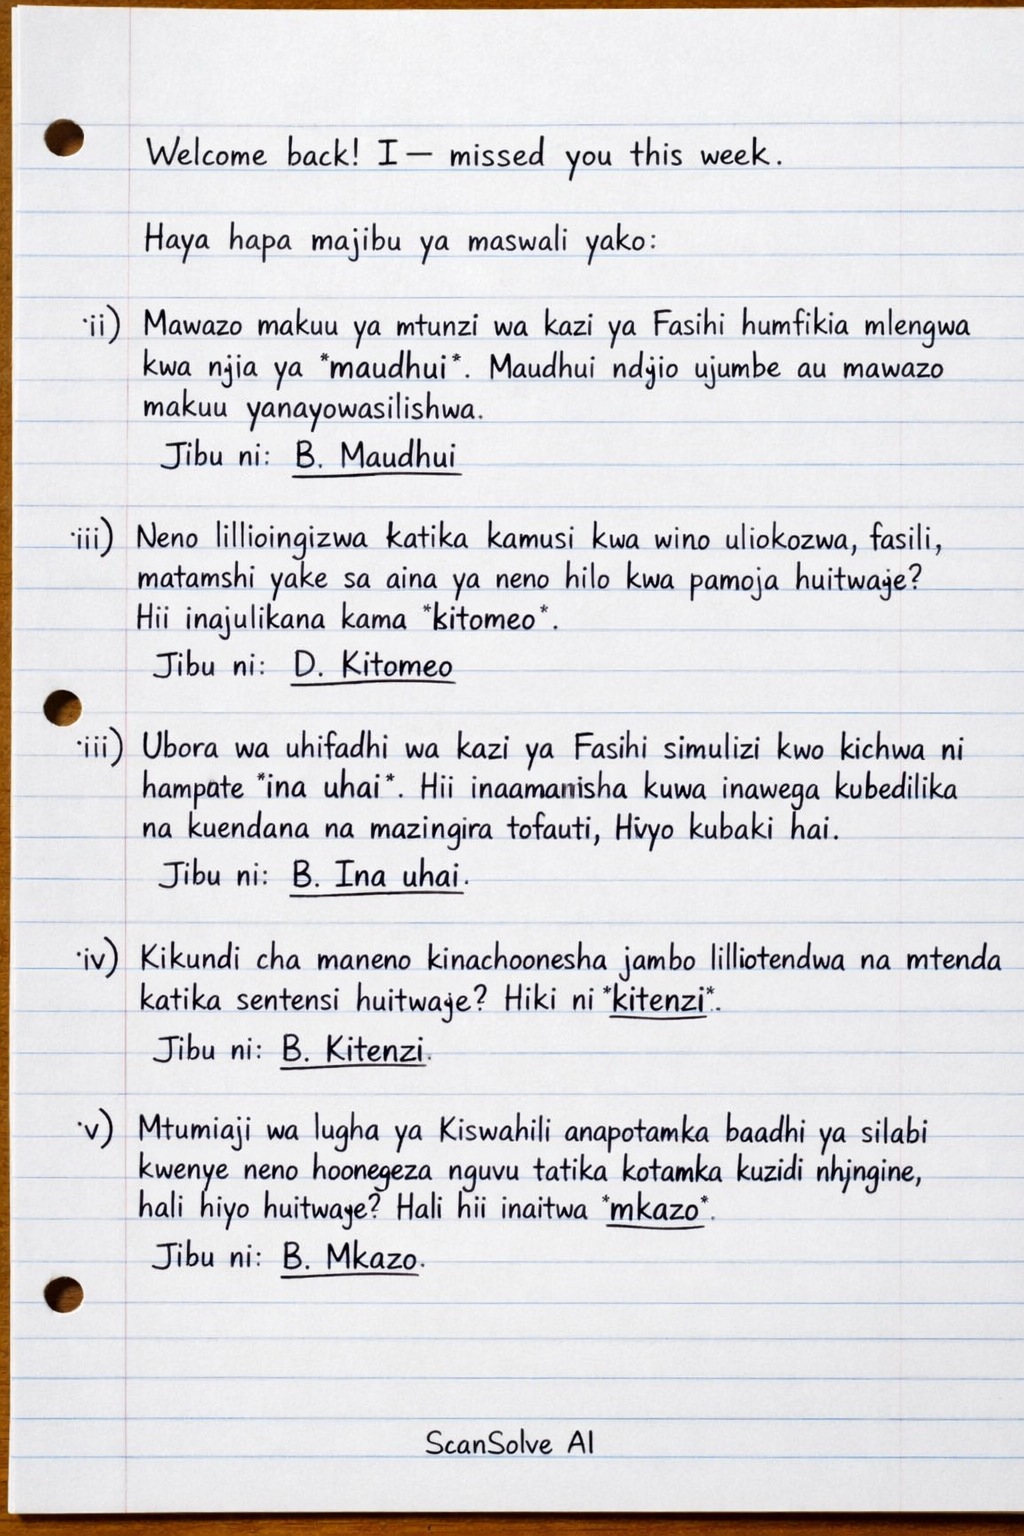 Welcome back! I — missed you this week.
Haya hapa majibu ya maswali yako:
ii) Mawazo makuu ya mtunzi wa kazi ya Fasihi humfikia mlengwa
kwa njia ya *maudhui*. Maudhui ndjio ujumbe au mawazo
makuu yanayowasilishwa.
Jibu ni: B. Maudhui
iii) Neno lillioingizwa katika kamusi kwa wino uliokozwa, fasili,
matamshi yake sa aina ya neno hilo kwa pamoja huitwaje?
Hii inajulikana kama *kitomeo*.
Jibu ni: D. Kitomeo
iii) Ubora wa uhifadhi wa kazi ya Fasihi simulizi kwo kichwa ni
hampate *ina uhai*. Hii inaamanisha kuwa inawega kubedilika
na kuendana na mazingira tofauti, Hivyo kubaki hai.
Jibu ni: B. Ina uhai.
iv) Kikundi cha maneno kinachoonesha jambo lilliotendwa na mtenda
katika sentensi huitwaje? Hiki ni *kitenzi*.
Jibu ni: B. Kitenzi.
v) Mtumiaji wa lugha ya Kiswahili anapotamka baadhi ya silabi
kwenye neno hoonegeza nguvu tatika kotamka kuzidi nhjngine,
hali hiyo huitwaje? Hali hii inaitwa *mkazo*.
Jibu ni: B. Mkazo.
ScanSolve AI